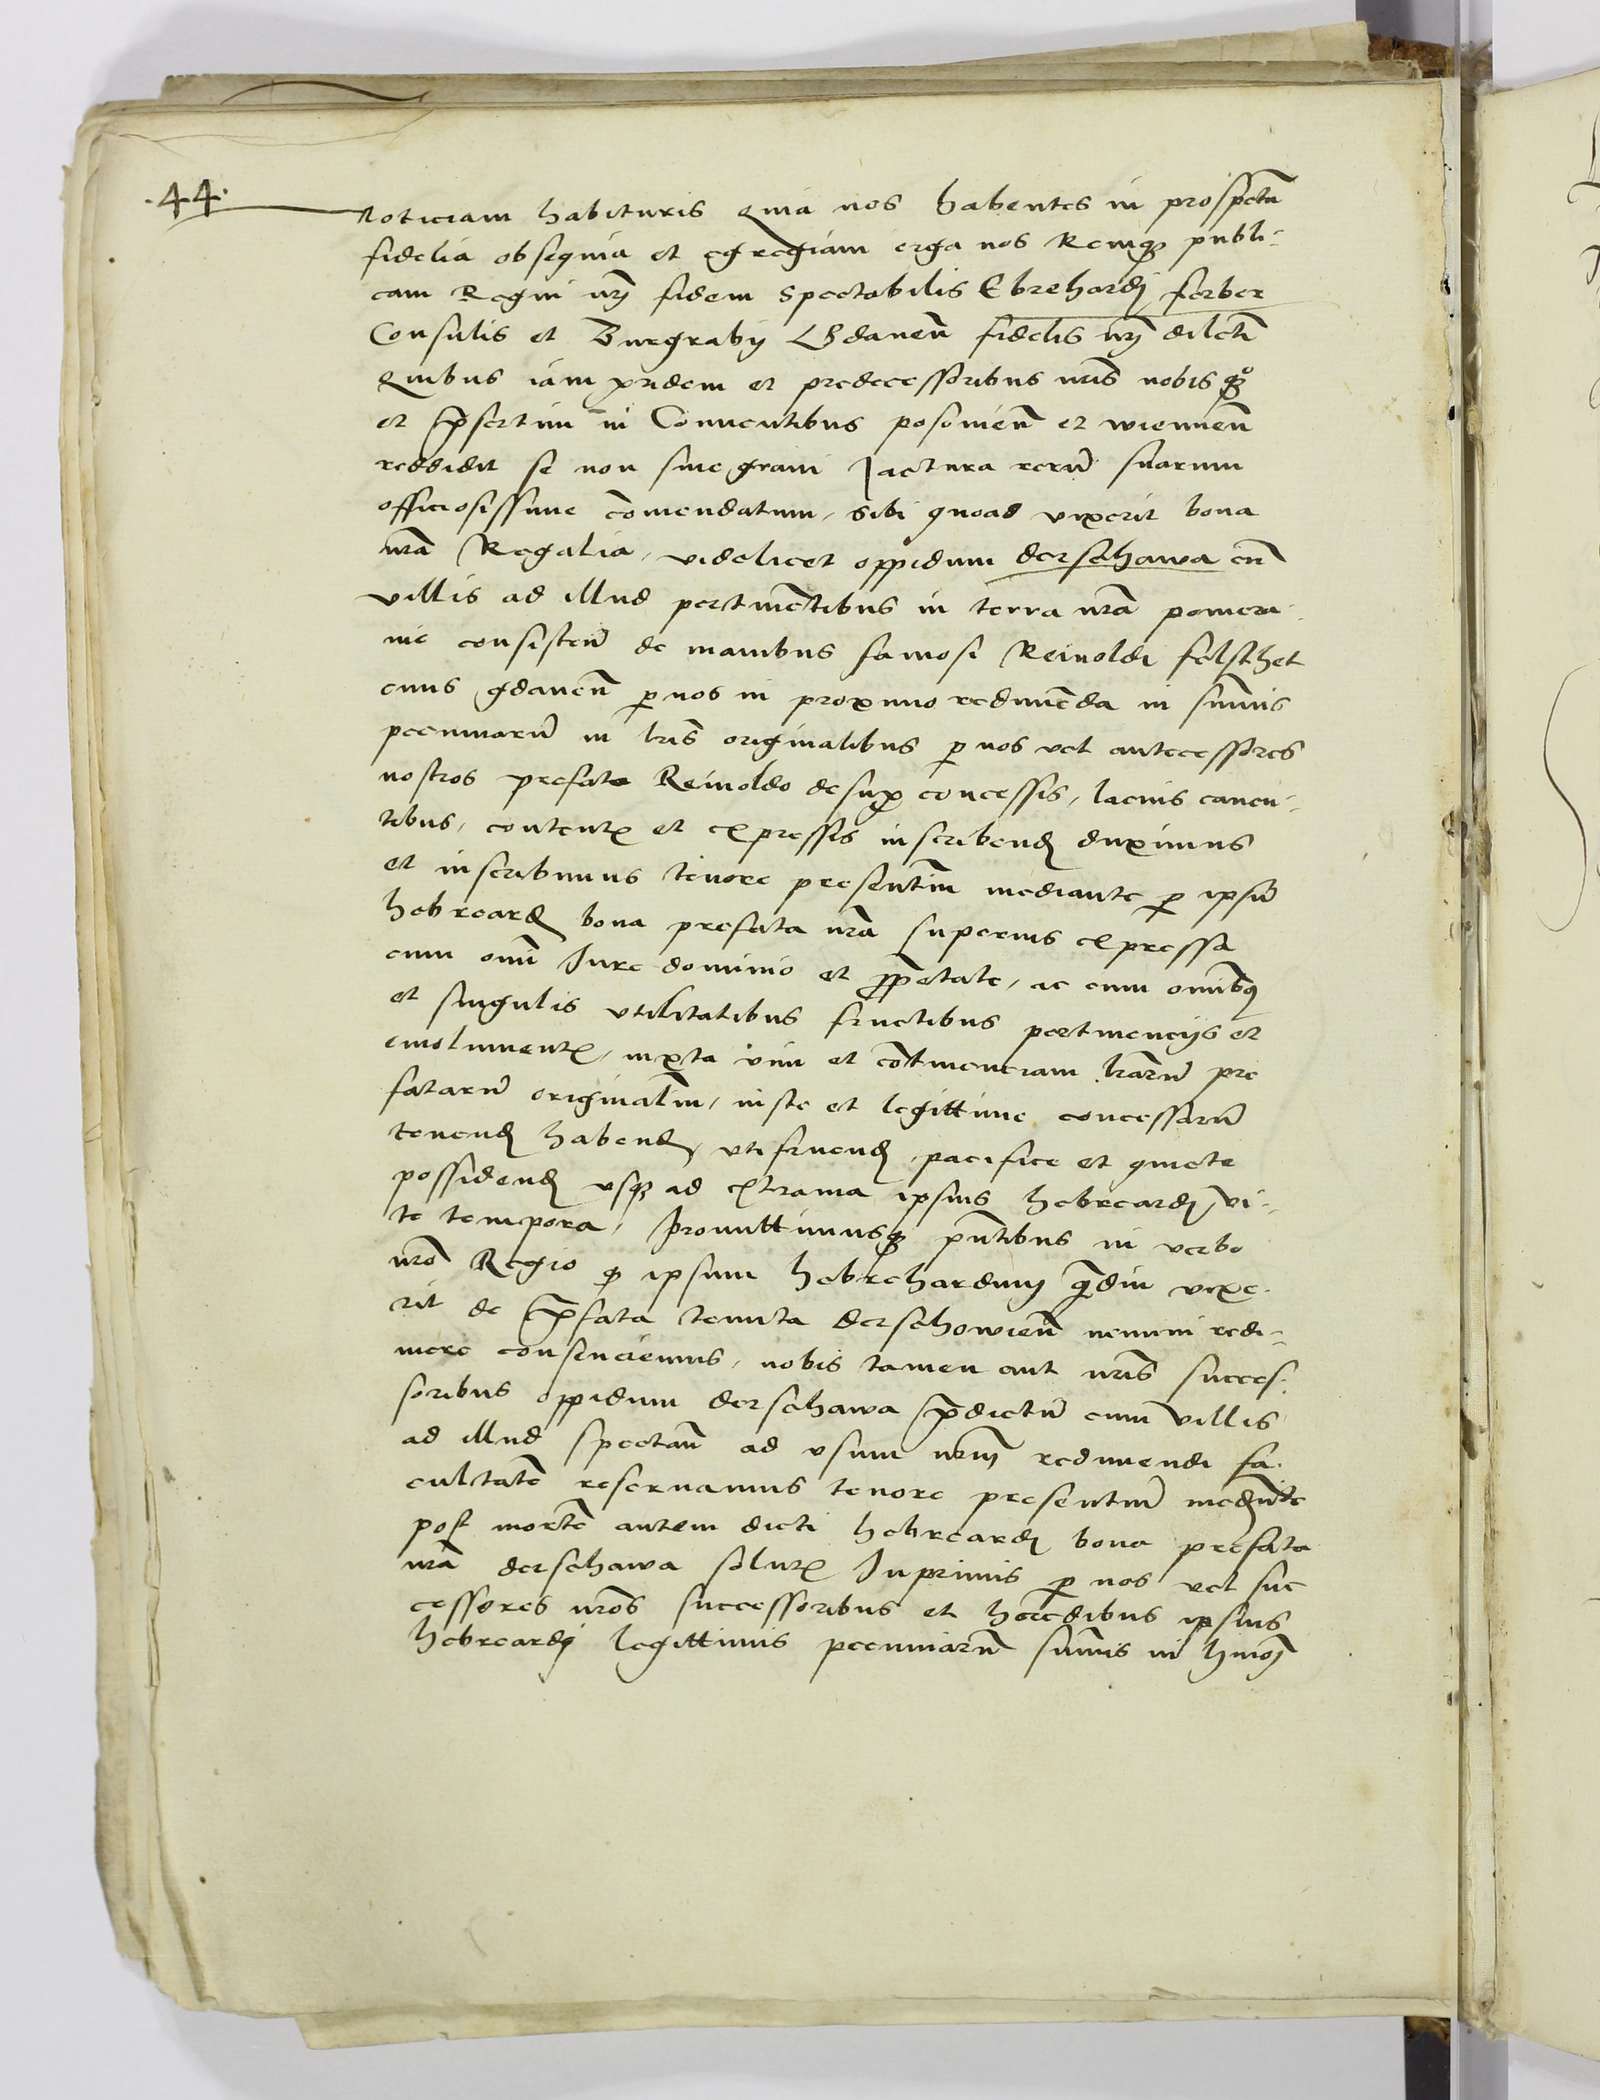 .44.
Noticiam habituris Quia nos habentes in prospectu
fidelia obsequia et egregiam erga nos Remq3 publi-
cam Regni nrj fidem Spectabilis Ebrehardj ferber
Consulis et Burgrabij Gdanen̄ fidelis nrj dilecti
Quibus iam pridem et predecessoribus nrīs nobisq3
et p̄sertim in Conventibus posonien̄ et wiennen̄
reddidit se non sine gravi Jactura rerū suarum
officiosissime com̄endatum, Sibi quoad vixerit bona
nrā Regalia, videlicet oppidum derschawa cū
villis ad illud pertinētibus in terra nrā pomera-
nie consisteñ de manibus famosi Reinoldi felsthet
civis gdanen̄ p nos in proximo redimēda in sum̄is
pecuniarū in lrīs originalibus p nos vel antecessores
nostros prefato Reinoldo desup concessis, lacius caven-
tibus, content et expressis inscribend duximus
et inscribimus tenore presentiū mediante p ipsū
hebreard bona prefata nrā superius expressa
cum om̄i Jure dominio et propetate, ac cum omībus
et singulis utilitatibus fructibus pertinencijs et
emolument, iuxta vim et cōtinenciam lrārū pre
fatarū originaliū, iuste et legittime concessarū
tenend habend, utifruend pacifice et quiete
possidend usq3 ad extrema ipsius hebreardj vi-
te tempora, Promittimusq3 pn̄tibus in verbo
nrō Regio q ipsum hebrehardum q̄diu vixe-
rit de p̄fata tenuta derschowien̄ nemini redi-
mere consenciemus, nobis tamen aut nrīs succes-
soribus oppidum derschawa p̄dictū cum villis
ad illud spectan̄ ad usum nrm̄ redimendi fa-
cultatē reservamus tenore presentiū medianīte
post mortē autem dicti hebreardj bona prefata
nrā derschawa solut Inprimis p nos vel suc
cessores nrōs successoribus et heredibus ipsius
hebreardj legittimis pecuniarū sum̄is in hmōj